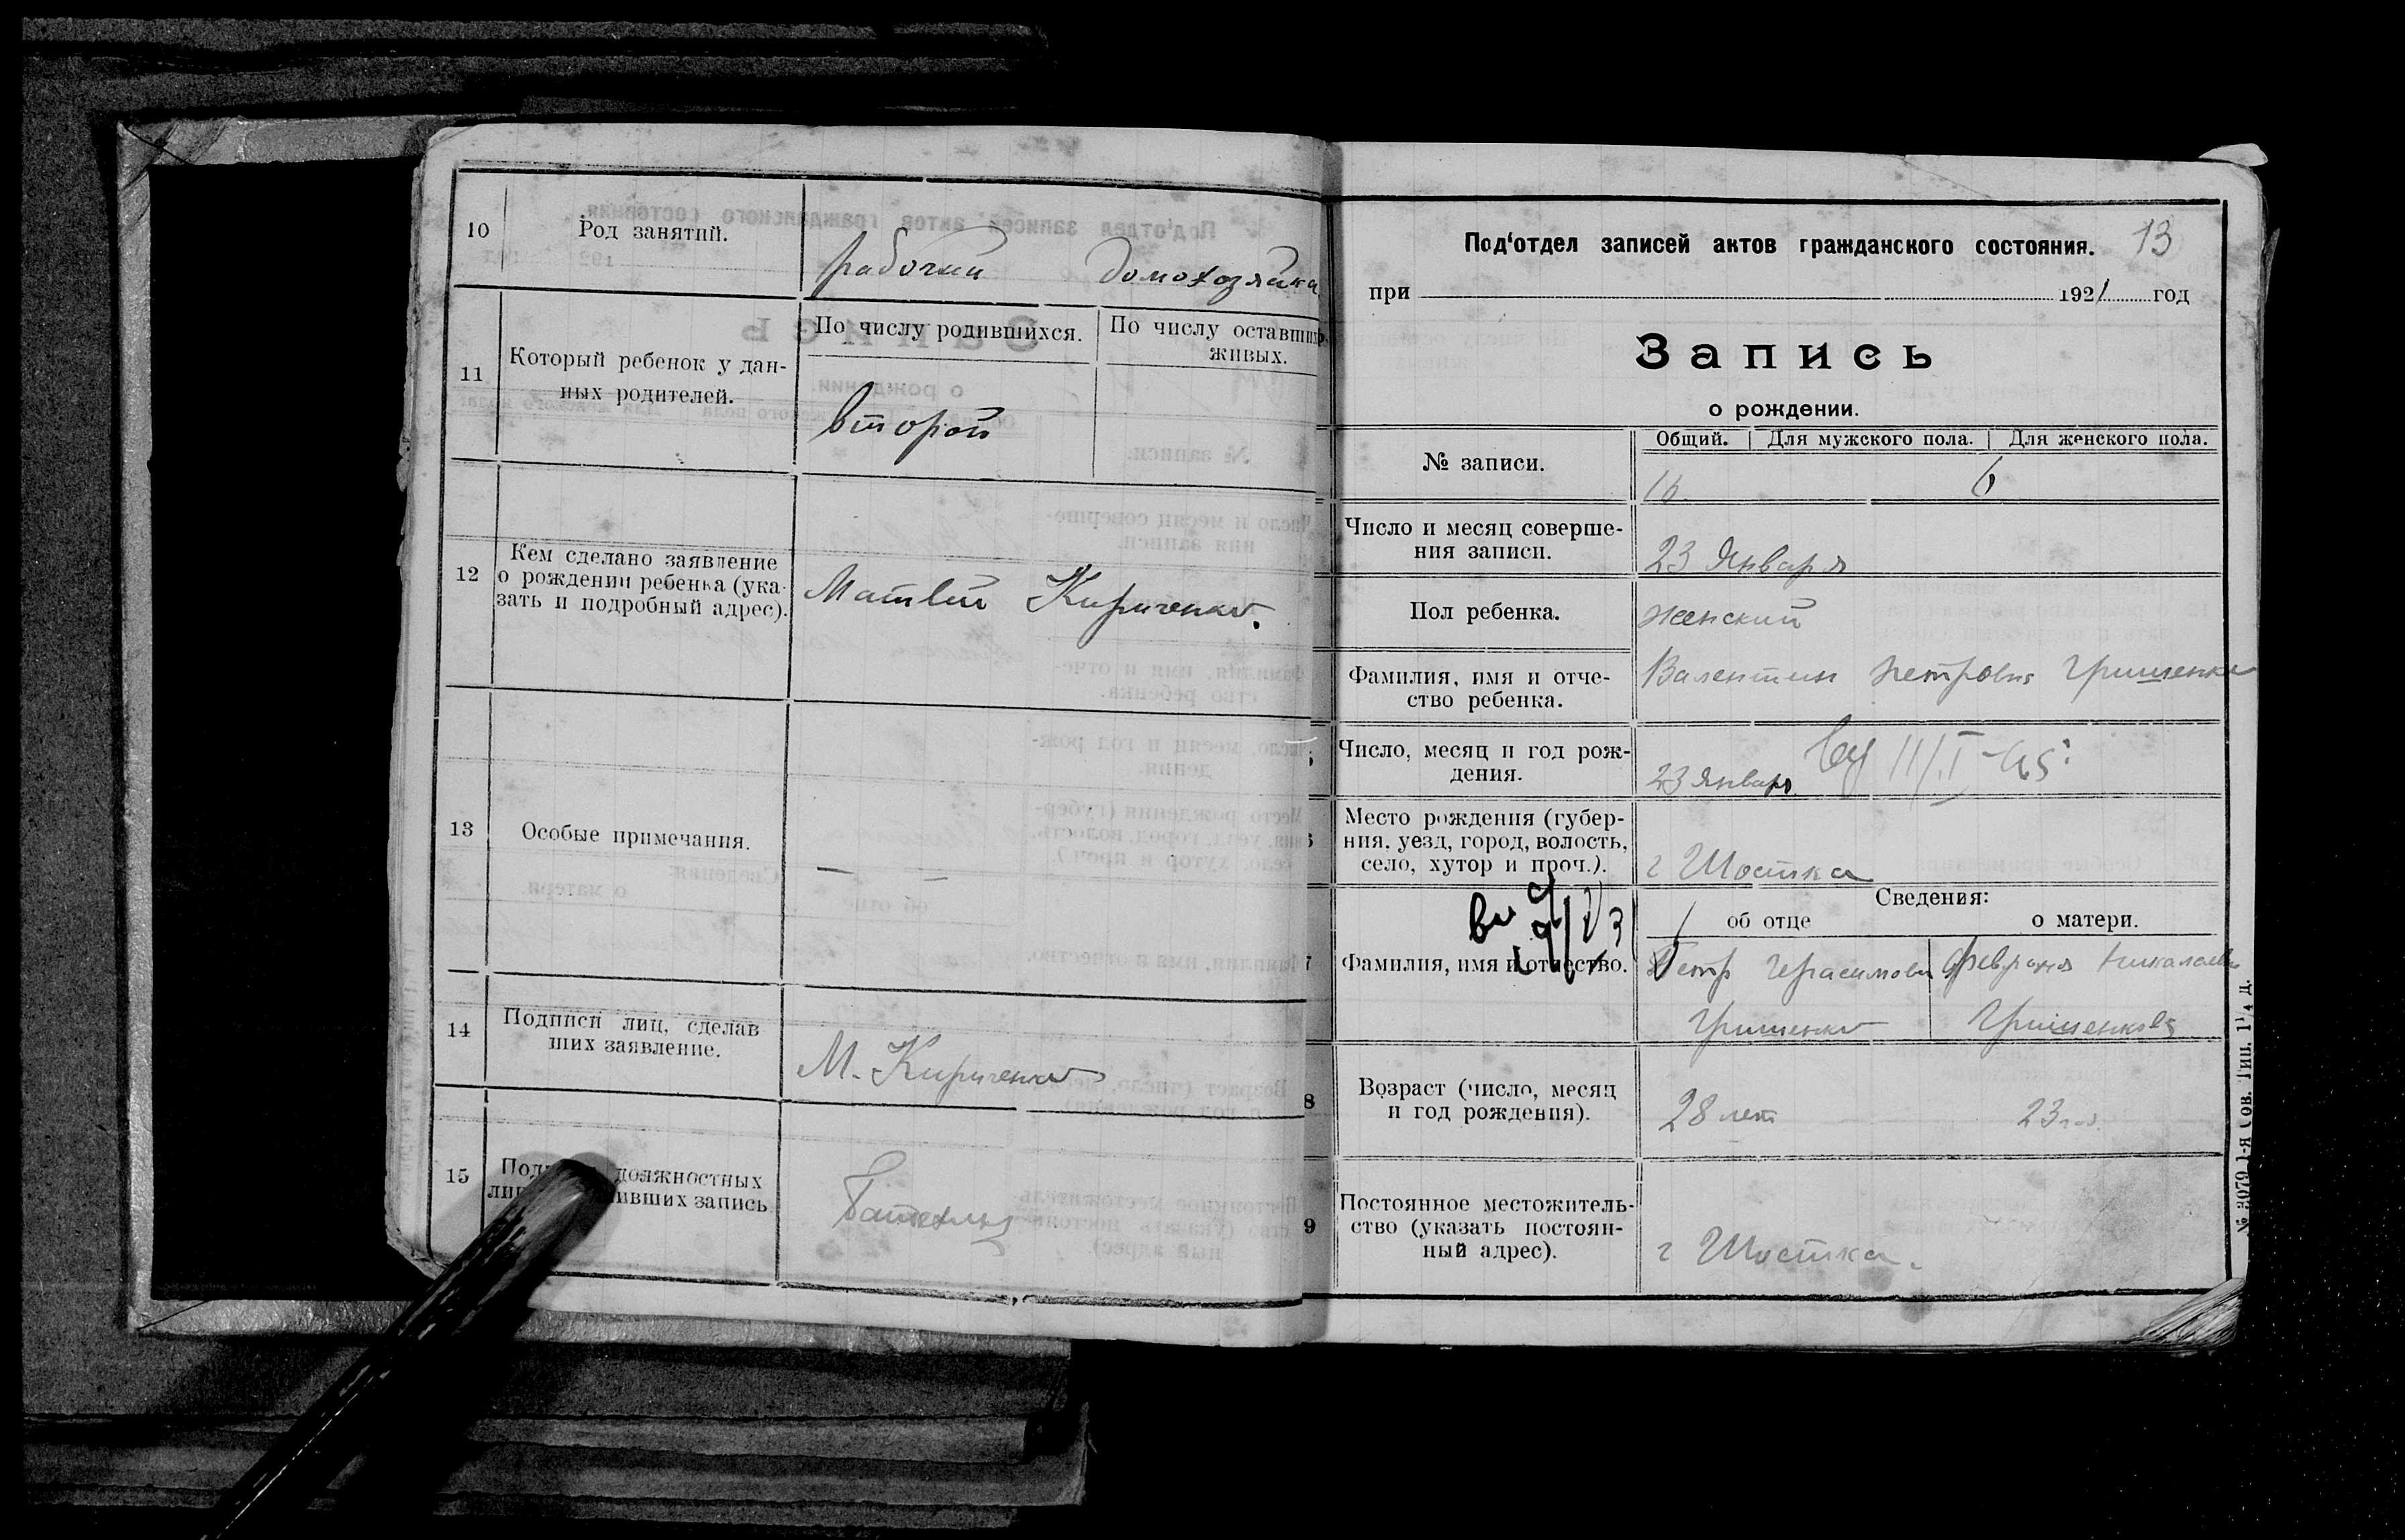 10
Род занятий.
рабочий домохозяйка
11
Который ребенок у дан-
ных родителей.
По числу родившихся.
По числу оставших
живых.
второй
12
Кем сделано заявление
о рождении ребенка (ука-
зать и подробный адрес).
Матвей Кириченко.
13
Особые примечания.
— —
14
Подписи лиц, сделав
ших заявление.
М. Кириченко
15
должностных
ивших запись
13
Под‘отдел записей актов гражданского состояния.
при 1921 год
Запись
о рождении.
№ записи.
Общий. Для мужского пола. Для женского пола.
16 6
Число и месяц соверше-
ния записи.
23 Января
Пол ребенка.
женский
Фамилия, имя и отче-
ство ребенка.
Валентин Петровна Грищенко
Число, месяц и год рож-
дения.
23 Января
11/I-45
Место рождения (губер-
ния, уезд, город, волость,
село, хутор и проч.).
г Шостка
Сведения:
об отце
о матери.
7
Фамилия, имя и отчество.
Петр Герасимович
Грищенко
Феврония Николаевн
Грищенкова
8
Возраст (число, месяц
и год рождения).
28 лет
23
9
Постоянное местожитель-
ство (указать постоян-
ный адрес).
г Шостка.
№ 3079 1-я Сов. Тип. 1¼ д.